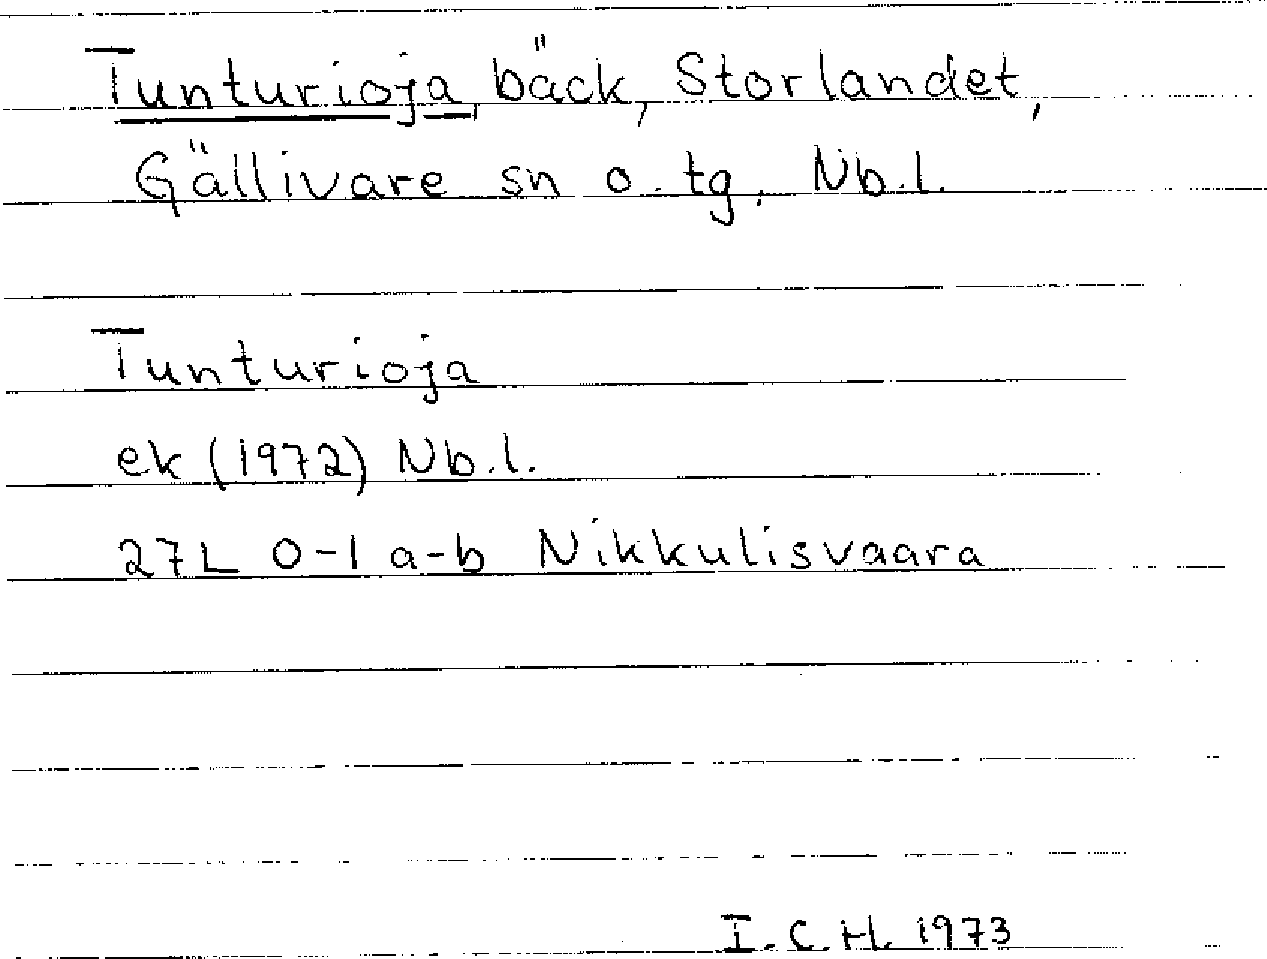 Tunturioja, bäck, Storlandet,
Gällivare sn o. tg, Nb.l.
Tunturioja
ek (1972) Nb.l.
27L 0-1 a-b Nikkulisvaara
I.C.H. 1973